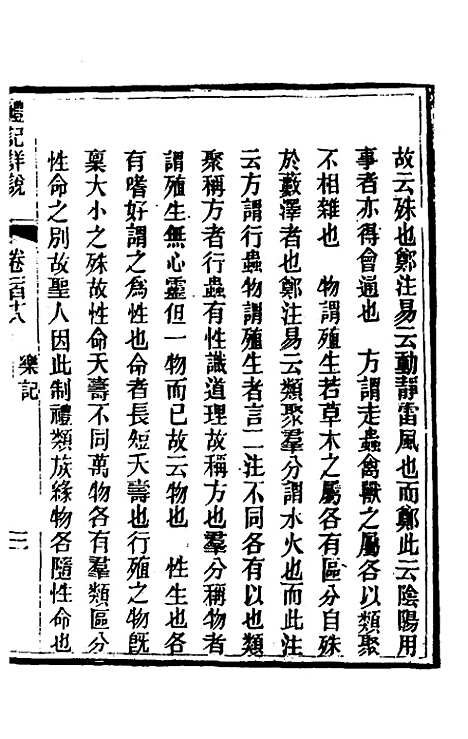 故云殊也鄭注易云動靜雷風也而鄭此云陰陽用
事者亦得會通也　方謂走蟲禽獸之屬各以類聚
不相雜也　物謂殖生若草木之屬各有區分自殊
於藪澤者也鄭注易云類聚羣分謂水火也而此注
云方謂行蟲物謂殖生者言二注不同各有以也類
聚稱方者行蟲有性識道理故稱方也羣分稱物者
謂殖生無心靈但一物而已故云物也　性生也各
有嗜好謂之為性也命者長短夭壽也行殖之物旣
稟大小之殊故性命夭壽不同萬物各有羣類區分
性命之別故聖人因此制禮類族緣物各隨性命也
禮記詳說　卷一百十八　樂記　三